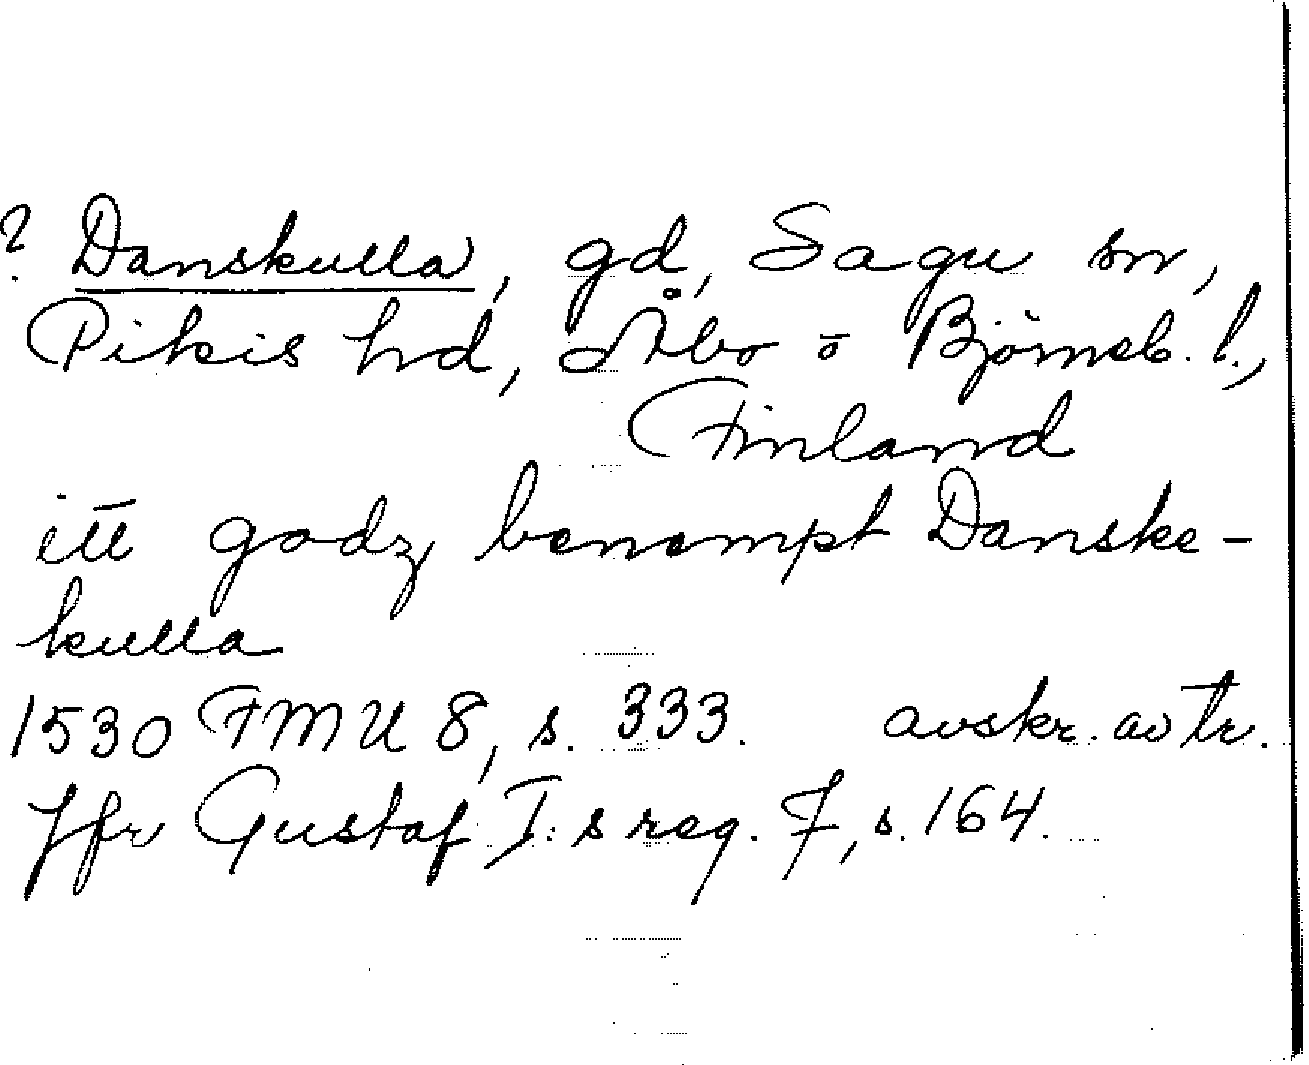 ? Danskulla, gd, Sagu sn,
Pikis hd, Åbo o Björneb. l.,
Finland
itt godz benempt Danske-
kulla
1530 FMU 8, s. 333. avskr. av tr.
Jfr Gustaf I:s reg. 7, s. 164.